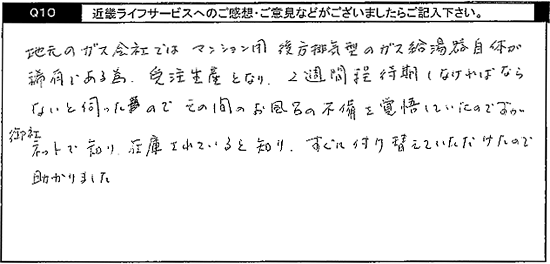 Q10 近畿ライフサービスへのご感想・ご意見などがございましたらご記入下さい。
地元のガス会社では マンション用 後方排気型のガス給湯器自体が
稀有である為、受注生産となり、2週間程待期しなければなら
ないと伺ったので その間のお風呂の不備を覚悟していたのですが
御社
ネットで知り、在庫されていると知り、すぐに付け替えていただけたので
助かりました